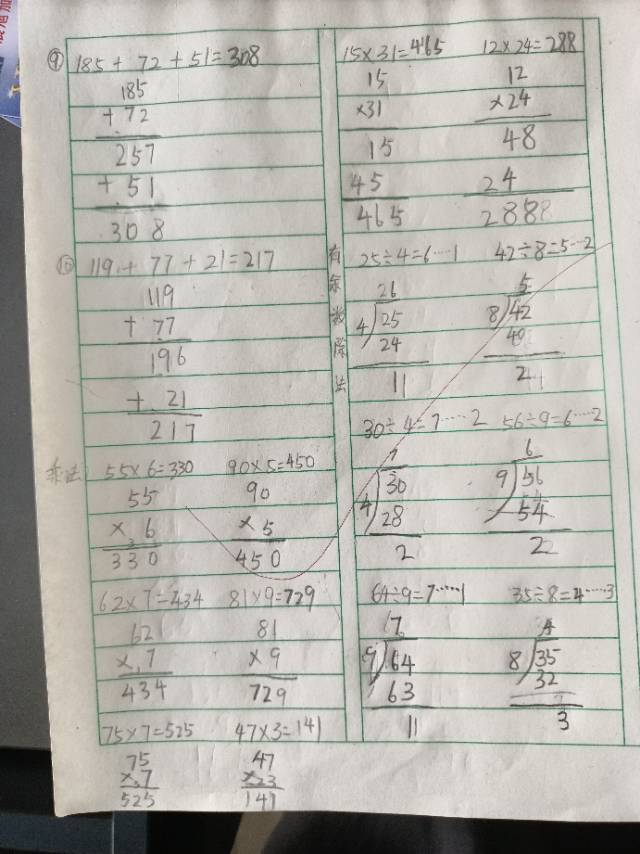 ⑨ 185 + 72 + 51 = 308
185
+ 72
257
+ 51
308
⑩ 119 + 77 + 21 = 217
119
+ 77
196
+ 21
217
乘法 55×6=330 90×5=450
55 90
× 6 × 5
330 450
62×7=434 81×9=729
62 81
× 7 × 9
434 729
75×7=525 47×3=141
75 47
× 7 × 3
525 141
15×31=465 12×24=288
15 12
×31 ×24
15 48
45 24
465 288
有余数除法
25÷4=6……1 42÷8=5…2
6 5
4 25 8 42
24 40
1 2
30÷4=7……2 56÷9=6……2
7 6
4 30 9 56
28 54
2 2
64÷9=7……1 35÷8=4……3
7 4
9 64 8 35
63 32
1 3